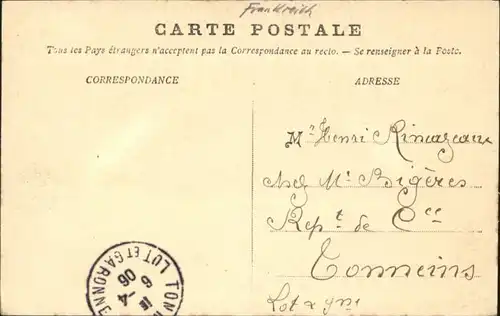 Frankreich
CARTE POSTALE
Tous les Pays étrangers n'acceptent pas la Correspondance au recto. — Se renseigner à la Poste.
CORRESPONDANCE
ADRESSE
Mr Henri Rimazeau
chez Mr Bigères
Rept de Cce
Tonneins
Lot & Gne
TONN
LOT ET GARONNE
6 -4
06